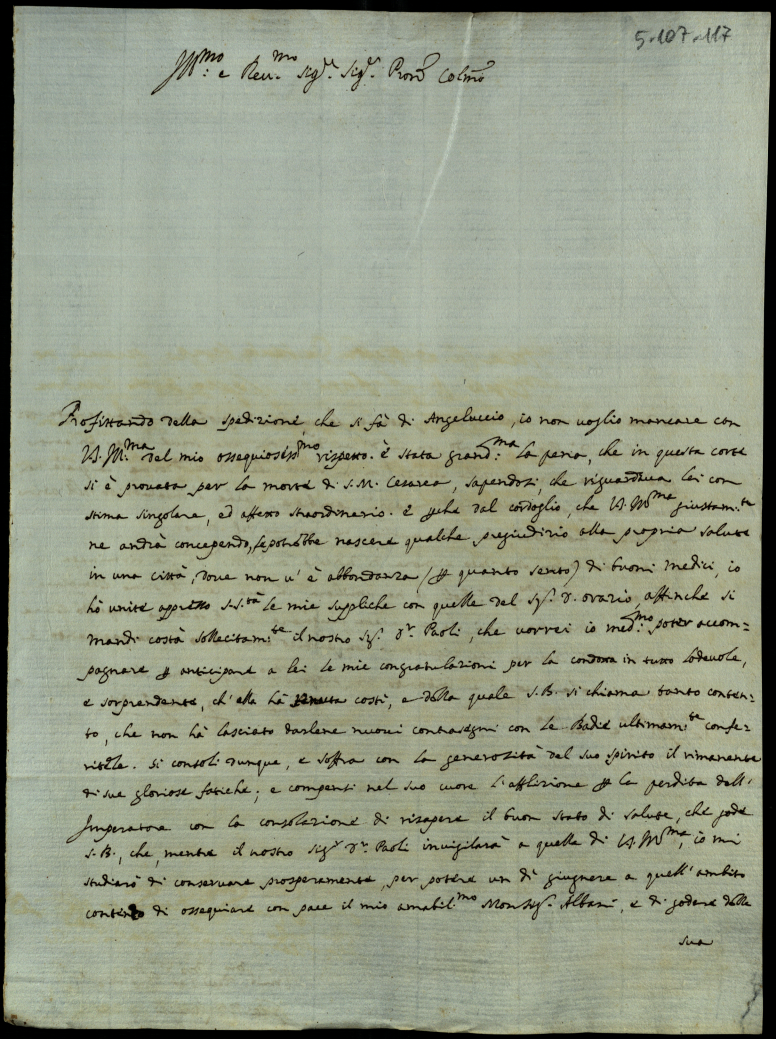 5-107-117
Ill:mo e Rev:mo Sig.r Sig.r Pron Colmo
Profittando della spedizione, che si fà di Angeluccio, io non voglio mancare con
V.S. Ill:ma del mio ossequiosiss:mo rispetto. è stata grand:ma la pena, che in questa corte
si è provata per la morte di S. M. Cesarea, sapendosi, che riguardava lei con
stima singolare, ed affetto straordinario. E perche dal cordoglio, che V.S. Ill:ma giustam:te
ne andrà concependo, le potrebbe nascere qualche pregiudizio alla propria salute
in una città, dove non v'è abbondanza (per quanto sento) di buoni medici, io
hò unite appresso S. S.tà le mie suppliche con quelle del Sig.r D. Orazio, affinche si
mandi costà sollecitam:te il nostro Sig.r Dr. Paoli, che vorrei io med:mo poter accom-
pagnare per anticipare a lei le mie congratulazioni per la condotta in tutto lodevole,
e sorprendente, ch'ella hà tenuta costi, e della quale S. B. si chiama tanto conten-
to, che non hà lasciato darlene nuovi contrasegni con le Badie ultimam:te confe-
ritele. Si consoli dunque, e soffra con la generosità del suo spirito il rimanente
di sue gloriose fatiche; e compensi nel suo cuore l'afflizione per la perdita dell'
Imperatore con la consolazione di risapere il buon stato di salute, che gode
S. B., che, mentre il nostro Sig.r Dr. Paoli invigilarà a quella di V.S. Ill:ma, io mi
studiarò di conservare prosperamente, per potere un dì giugnere a quell'ambito
contento di ossequiare con pace il mio amabil:mo Monsig.r Albani, e di godere della
sua